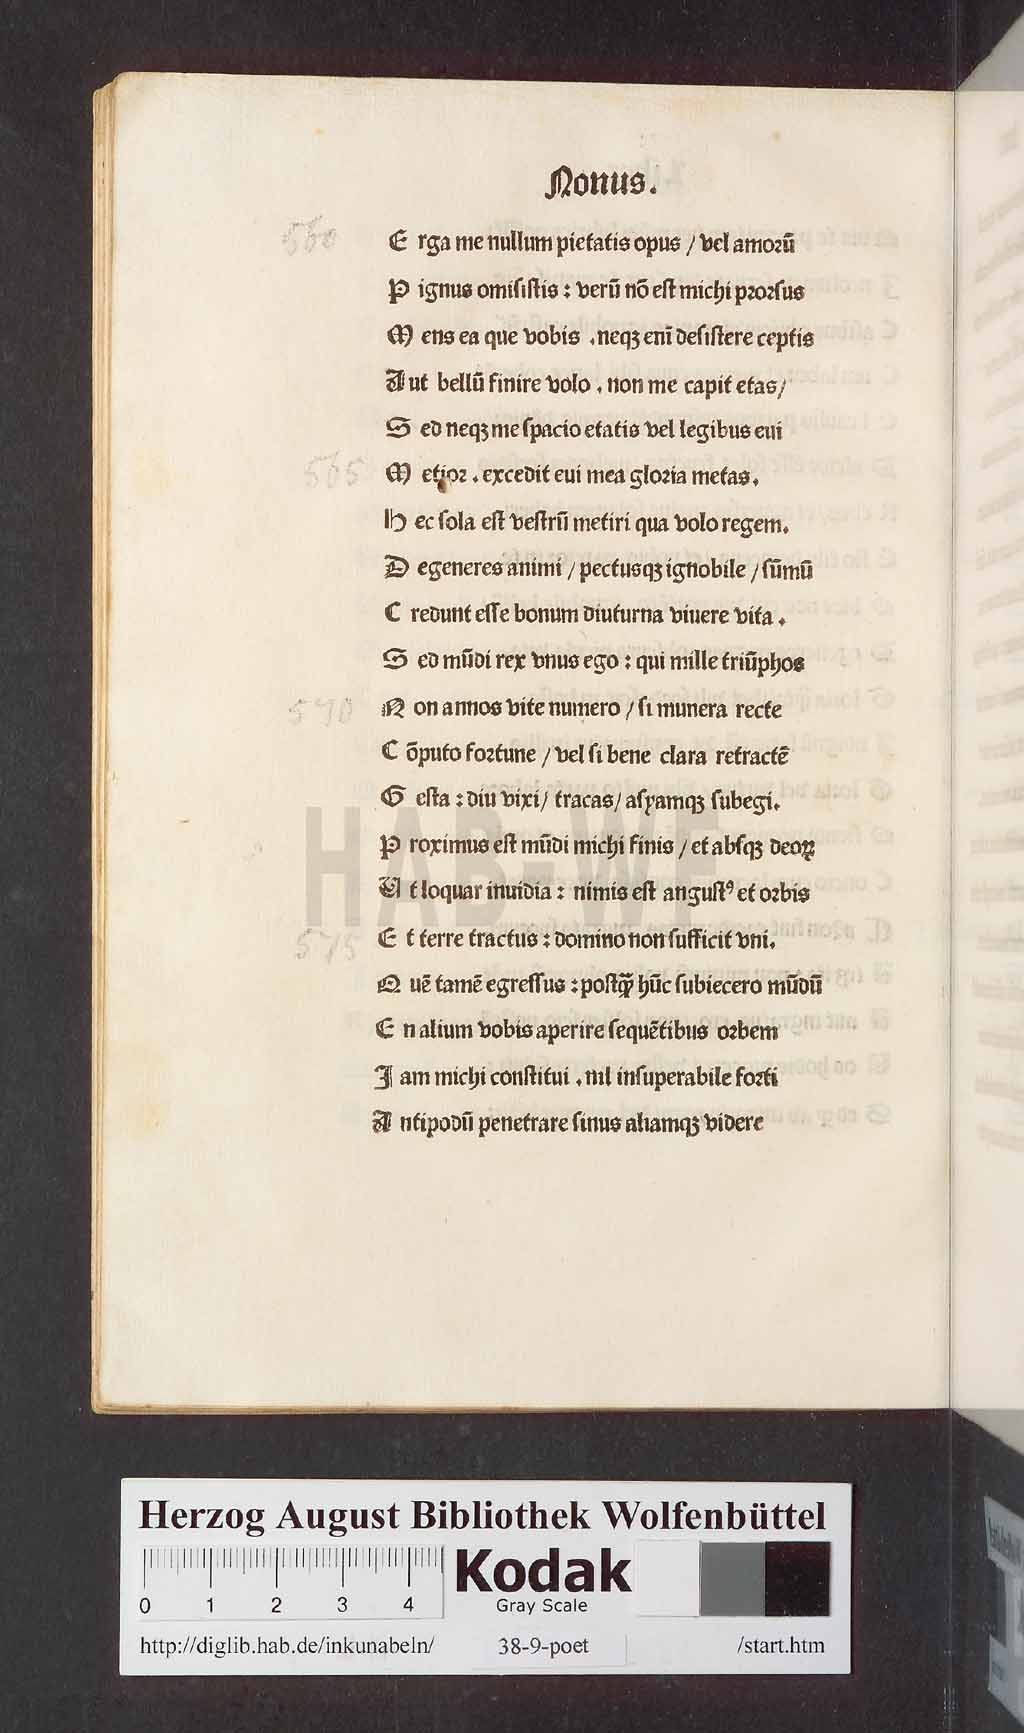 Nonus.
560
E rga me nullum pietatis opus / vel amoꝛū
P ignus omiſiſtis : verū nō eſt michi pꝛoꝛſus
M ens ea que vobis . neqꝫ enī deſiſtere ceptis
A ut bellū finire volo . non me capit etas /
S ed neqꝫ me ſpacio etatis vel legibus eui
565
M etioꝛ . excedit eui mea gloꝛia metas .
H ec ſola eſt veſtrū metiri qua volo regem .
D egeneres animi / pectusqꝫ ignobile / ſūmū
C redunt eſſe bonum diuturna viuere vita .
S ed mūdi rex vnus ego : qui mille triūphos
570
N on annos vite numero / ſi munera recte
C ōputo foꝛtune / vel ſi bene clara retractē
G eſta : diu vixi / tracas / aſyamqꝫ ſubegi .
P roximus eſt mūdi michi finis / et abſqꝫ deoꝝ
U t loquar inuidia : nimis eſt anguſtꝰ et oꝛbis
575
E t terre tractus : domino non ſufficit vni .
Q uē tamē egreſſus : poſtqꝫ̄ hūc ſubiecero mūdū
E n alium vobis aperire ſequētibus oꝛbem
I am michi conſtitui . nil inſuperabile foꝛti
A ntipodū penetrare ſinus aliamqꝫ videre
HAB-WF
Herzog August Bibliothek Wolfenbüttel
0 1 2 3 4
Kodak
Gray Scale
http://diglib.hab.de/inkunabeln/ 38-9-poet /start.htm